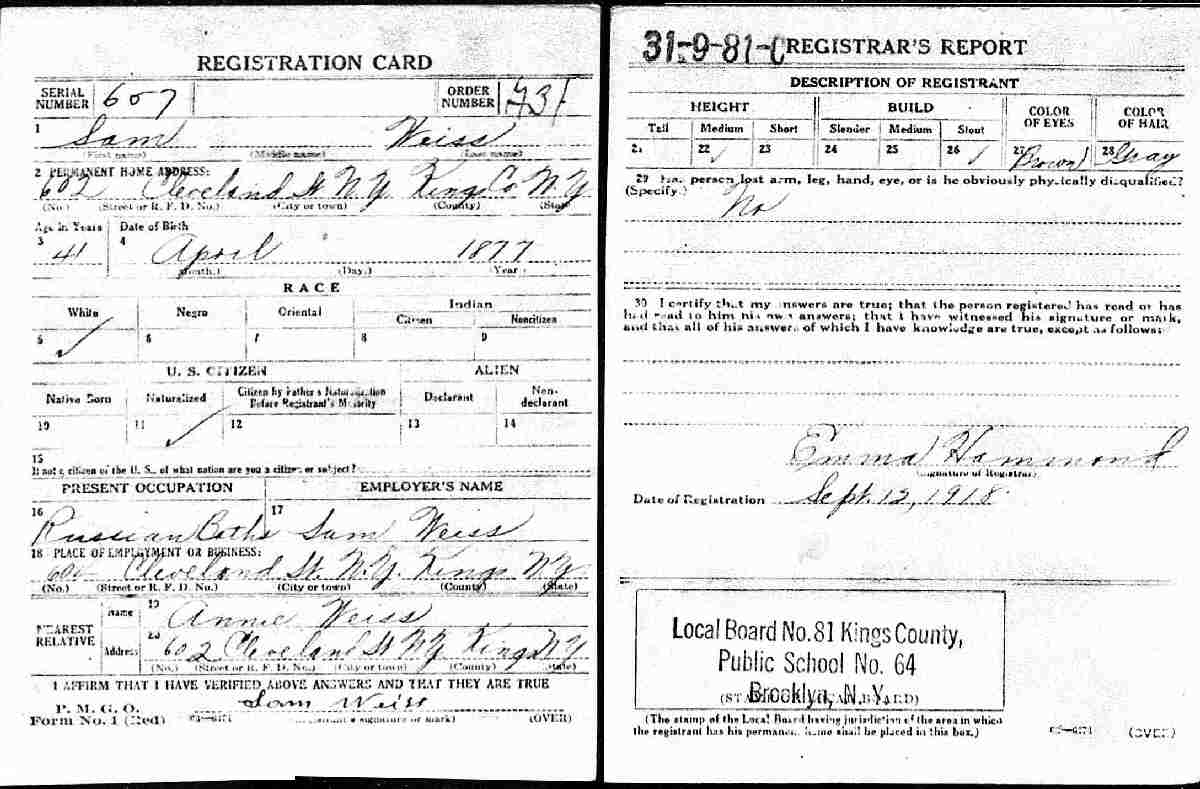 REGISTRATION CARD
SERIAL NUMBER 607 ORDER NUMBER
1 Sam Weiss
(First name) (Middle name) (Last name)
2 PERMANENT HOME ADDRESS:
602 Cleveland St N.Y. Kings Co N.Y
(No.) (Street or R. F. D. No.) (City or town) (County) (State)
Age in Years Date of Birth
3 41 4 April 1877
(Month.) (Day.) (Year)
RACE
White Negro Oriental Indian
Citizen Noncitizen
5 ✓ 6 7 8 9
U. S. CITIZEN ALIEN
Native Born Naturalized Citizen by Father's Naturalization Before Registrant's Majority Declarant Non-declarant
10 11 ✓ 12 13 14
15
If not a citizen of the U. S., of what nation are you a citizen or subject?
PRESENT OCCUPATION EMPLOYER'S NAME
16 Russian Baths 17 Sam Weiss
18 PLACE OF EMPLOYMENT OR BUSINESS:
Cleveland St. N.Y. Kings NY
(No.) (Street or R. F. D. No.) (City or town) (County) (State)
NEAREST RELATIVE Name 19 Annie Weiss
Address 20 602 Cleveland St NY Kings NY
(No.) (Street or R. F. D. No.) (City or town) (County) (State)
I AFFIRM THAT I HAVE VERIFIED ABOVE ANSWERS AND THAT THEY ARE TRUE
P. M. G. O.
Form No. 1 (Red) Sam Weiss
(Registrant's signature or mark) (OVER)
31-9-81-C REGISTRAR'S REPORT
DESCRIPTION OF REGISTRANT
HEIGHT BUILD COLOR OF EYES COLOR OF HAIR
Tall Medium Short Slender Medium Stout
21 22 ✓ 23 24 25 26 ✓ 27 Brown 28 Gray
29 Has person lost arm, leg, hand, eye, or is he obviously physically disqualified?
(Specify.) No
30 I certify that my answers are true; that the person registered has read or has
had read to him his own answers; that I have witnessed his signature or mark,
and that all of his answers of which I have knowledge are true, except as follows:
Emma Hammond
(Signature of Registrar)
Date of Registration Sept. 12, 1918
Local Board No. 81 Kings County,
Public School No. 64
Brooklyn, N. Y.
(The stamp of the Local Board having jurisdiction of the area in which
the registrant has his permanent home shall be placed in this box.)
(OVER)